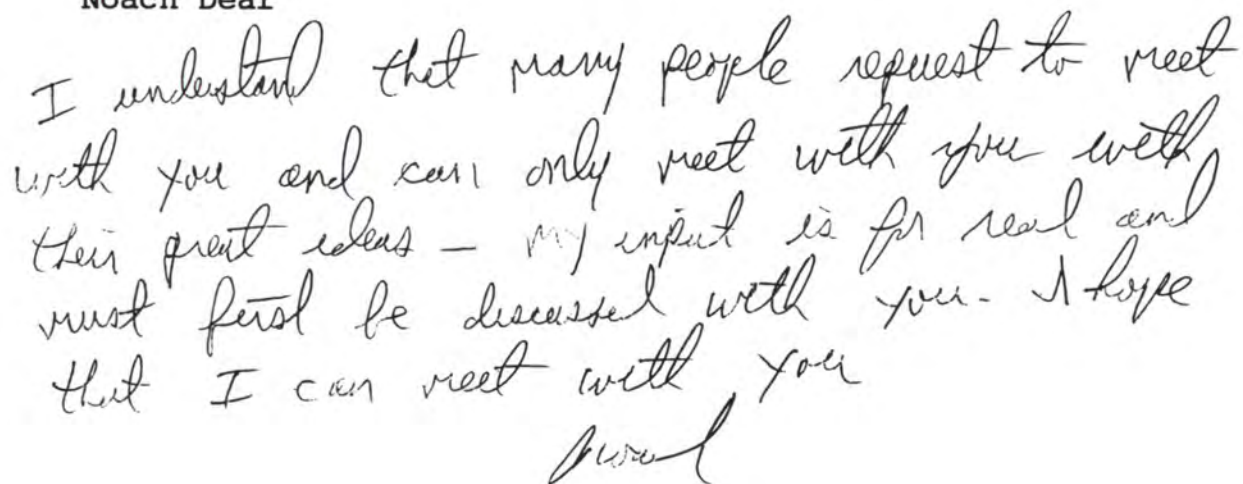 Noach Dear
I understand that many people request to meet
with you and can only meet with you with
their great ideas — my input is for real and
must first be discussed with you. I hope
that I can meet with you